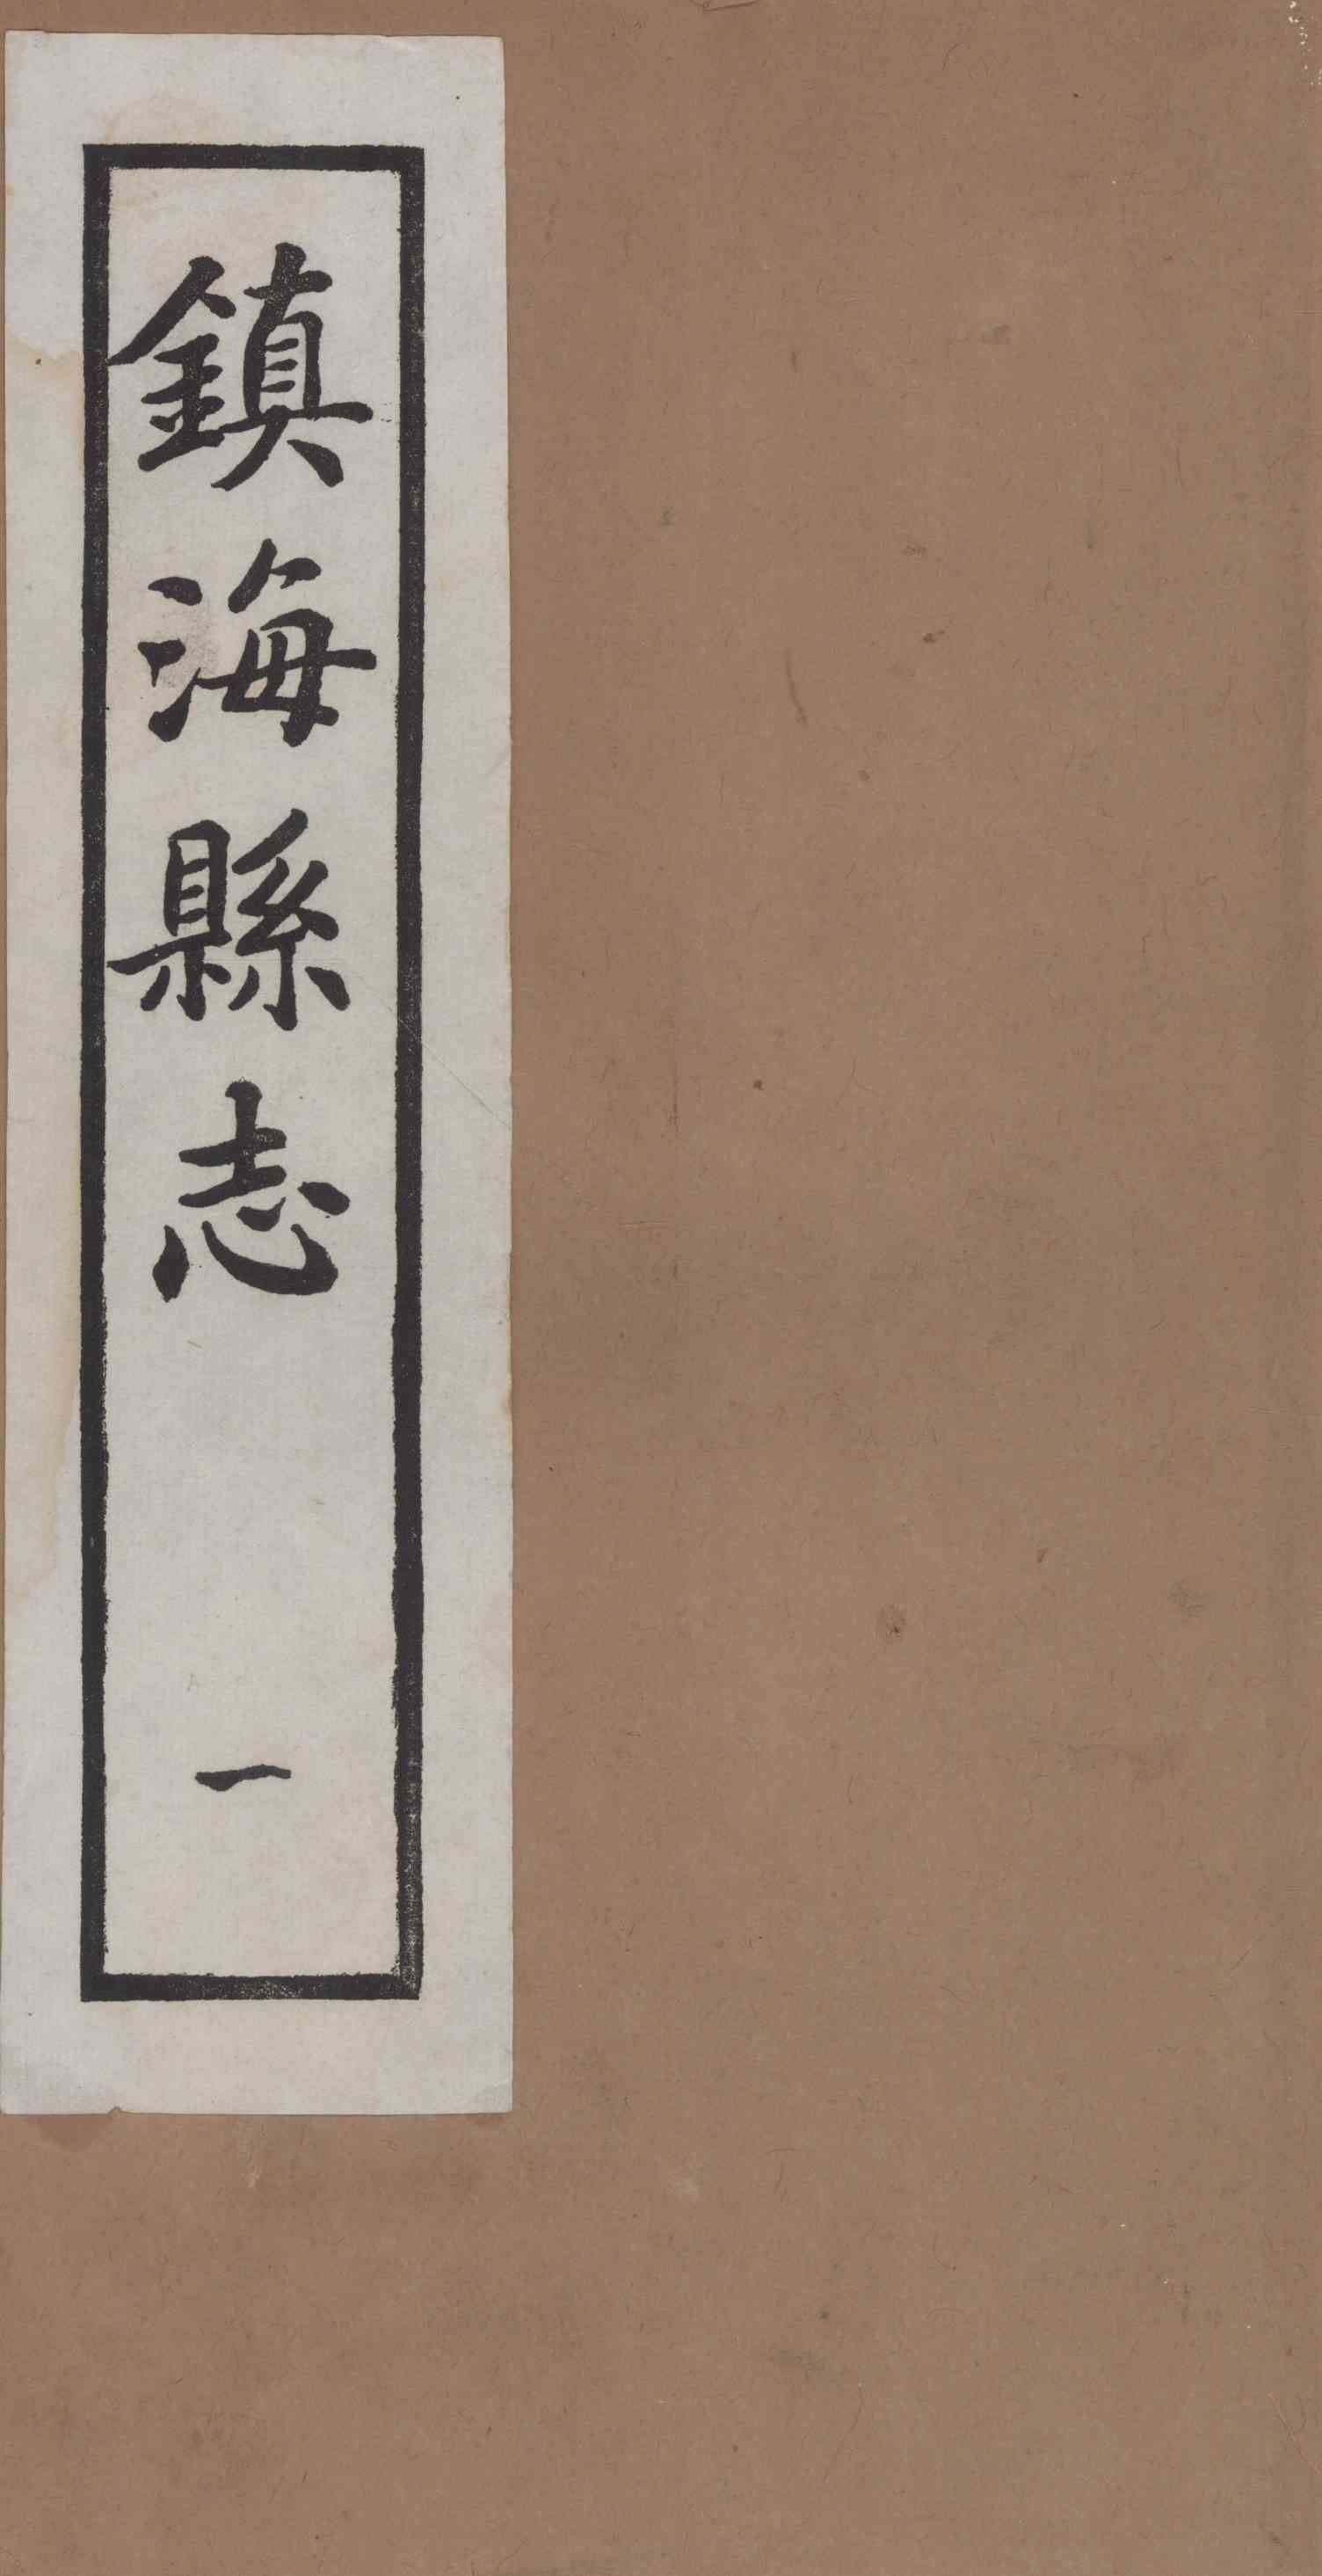 鎮海縣志
一